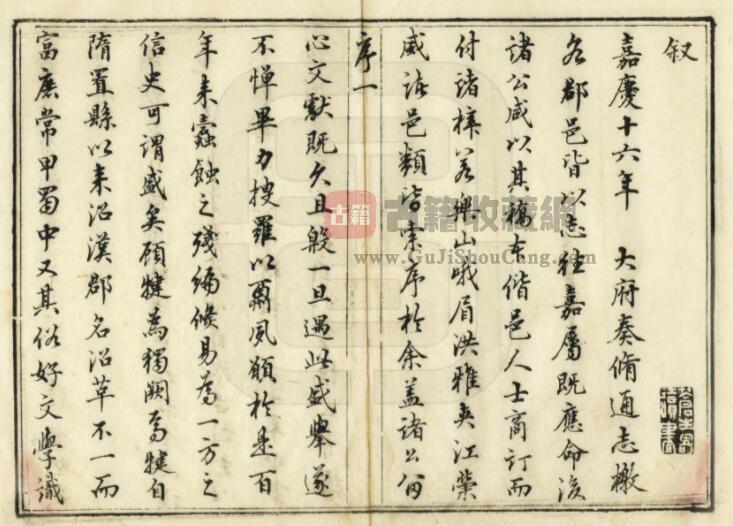 叙
嘉慶十六年 大府奏脩通志檄
各郡邑皆以志往嘉屬既應命後
諸公咸以其稿本偕邑人士商訂而
付諸梓若樂山峨眉洪雅夾江榮
威諸邑類皆索序於余蓋諸公留
序一
心文獻既久且殷一旦遇此盛舉遂
不憚畢力搜羅以酬夙願於是百
年來蠹蝕之殘編倏易為一方之
信史可謂盛矣顧犍為獨闕焉犍自
隋置縣以來沿漢郡名沿革不一而
富庶常甲蜀中又其俗好文學識
古籍
古籍收藏網
www.GuJiShouCang.com